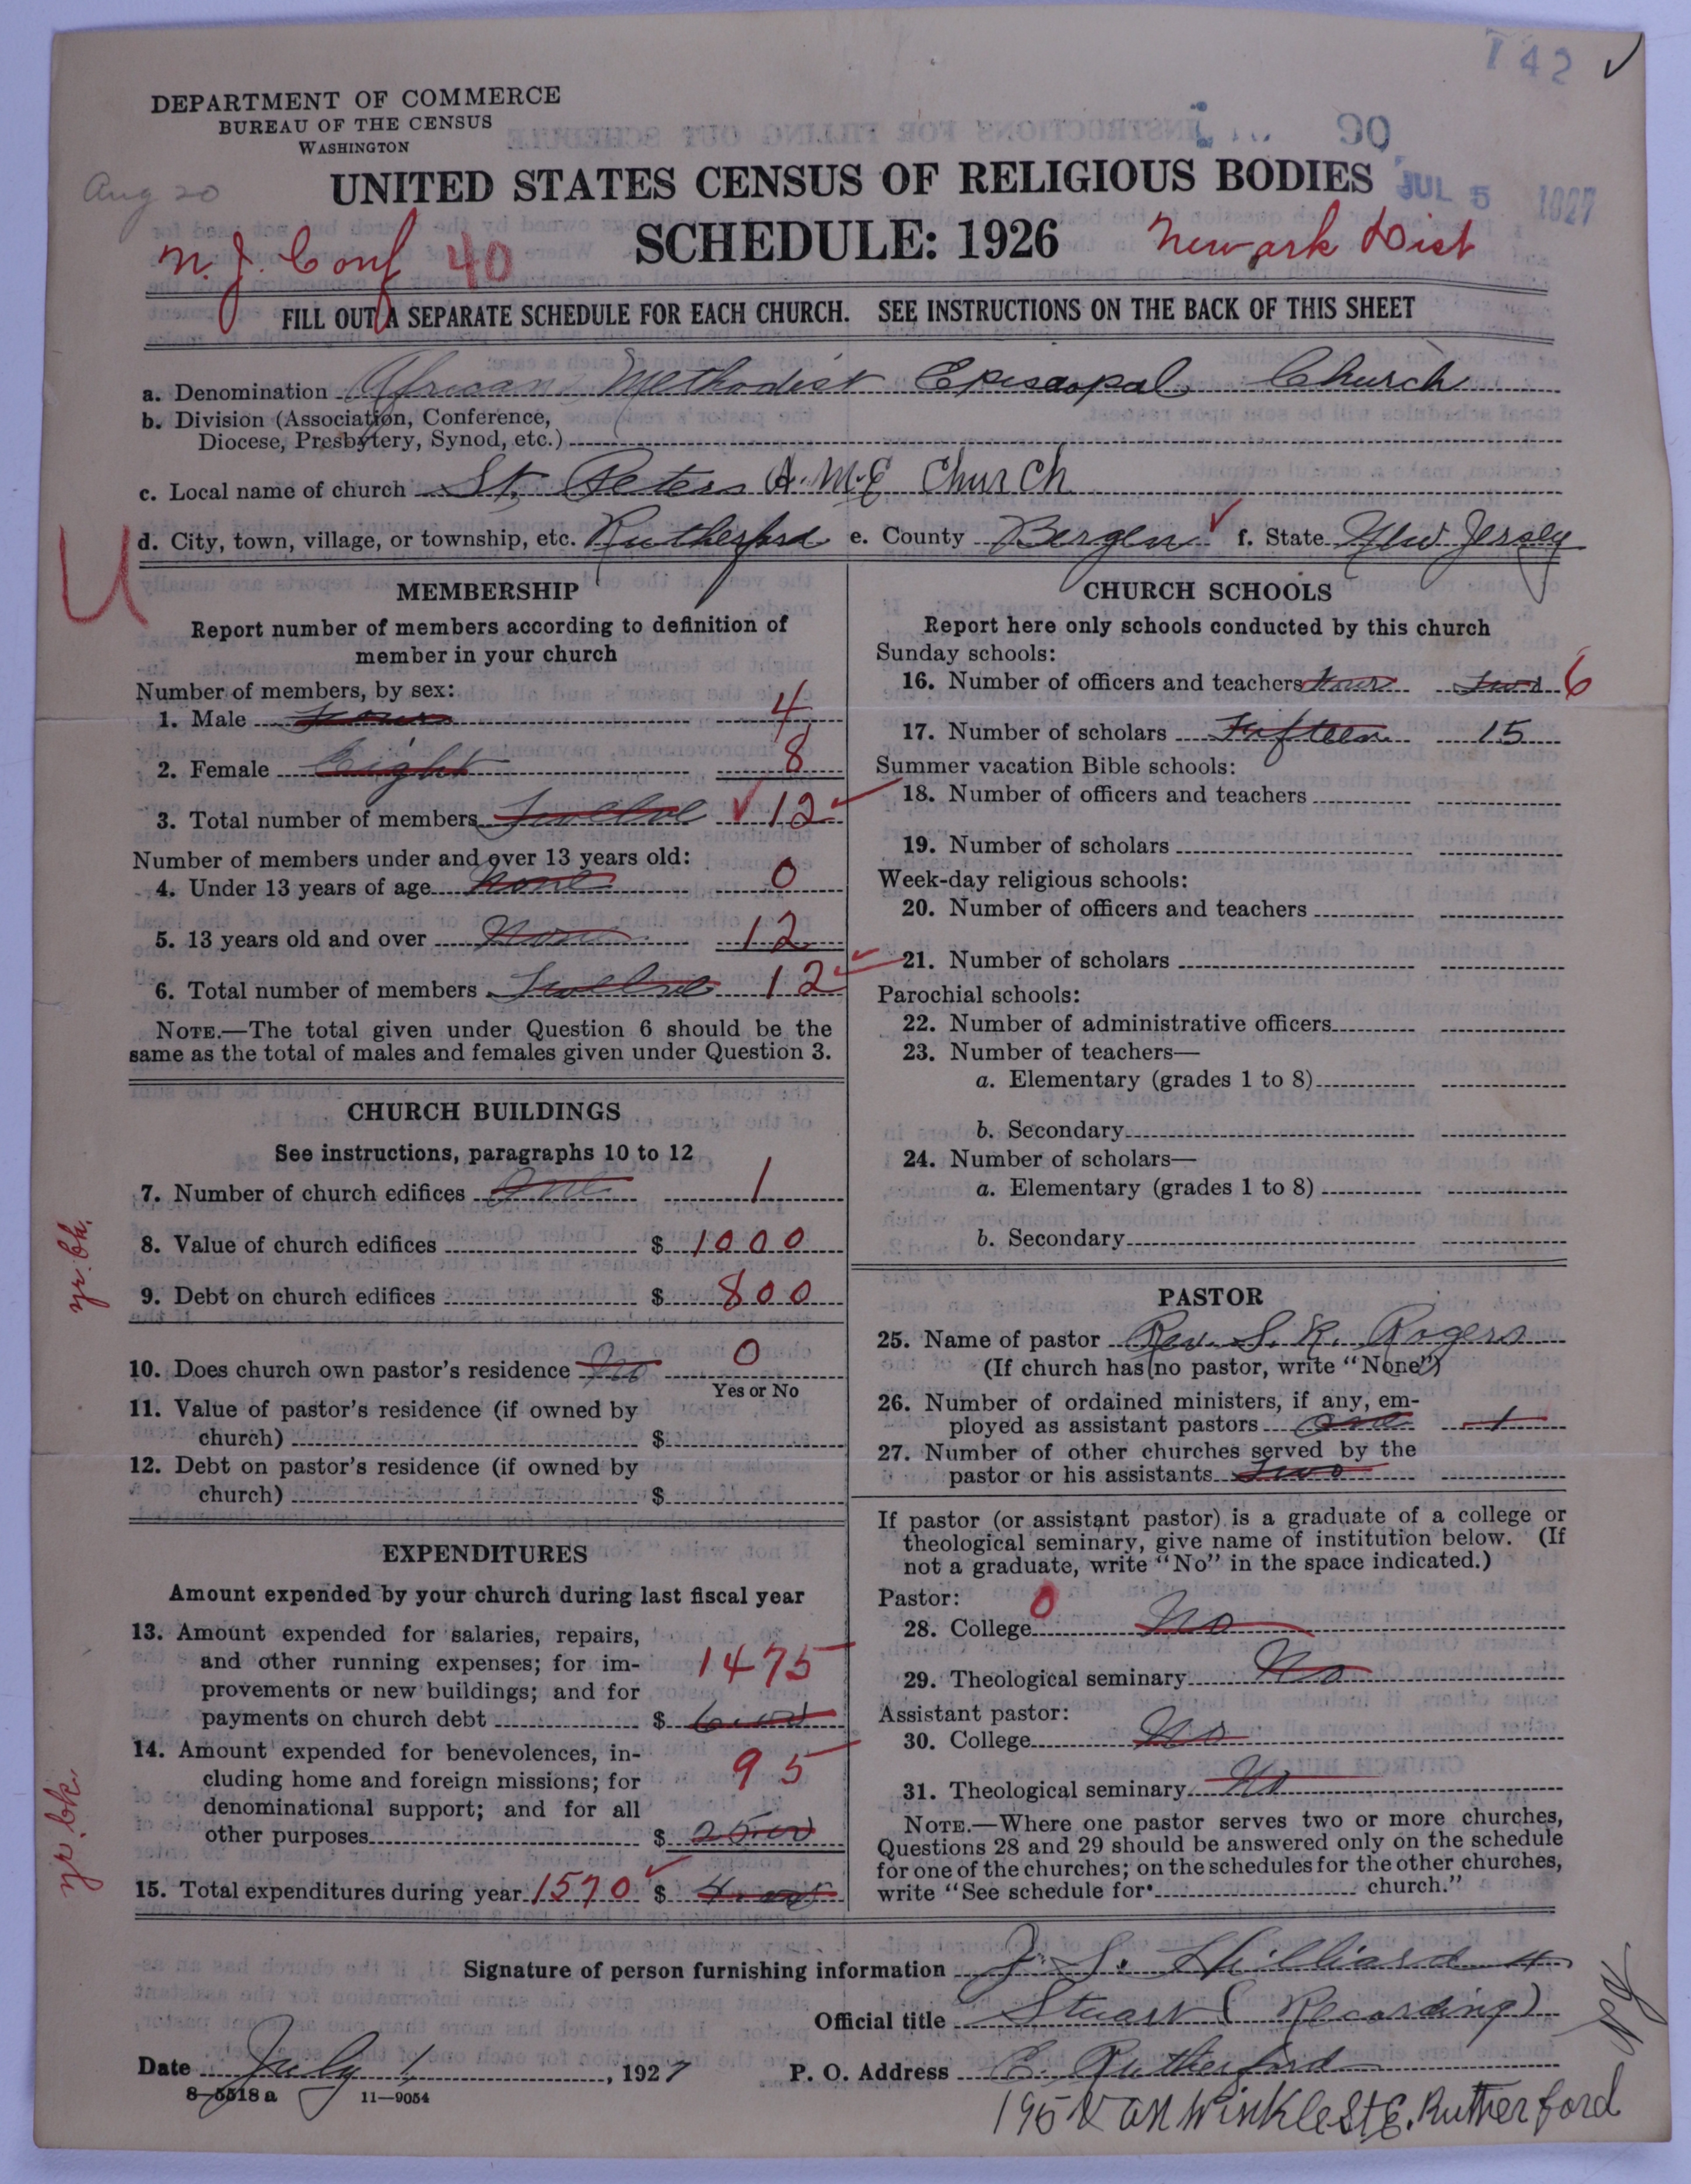 742 ✓
DEPARTMENT OF COMMERCE
BUREAU OF THE CENSUS
WASHINGTON
90
Aug 20
UNITED STATES CENSUS OF RELIGIOUS BODIES
JUL 5 1927
N. J. Conf 40
SCHEDULE: 1926
Newark Dist
FILL OUT A SEPARATE SCHEDULE FOR EACH CHURCH. SEE INSTRUCTIONS ON THE BACK OF THIS SHEET
a. Denomination African Methodist Episcopal Church
b. Division (Association, Conference,
Diocese, Presbytery, Synod, etc.)
c. Local name of church St. Peters A.M.E Church
d. City, town, village, or township, etc. Rutherford e. County Bergen f. State New Jersey
U
MEMBERSHIP
Report number of members according to definition of
member in your church
Number of members, by sex:
1. Male Four 4
2. Female Eight 8
3. Total number of members Twelve 12
Number of members under and over 13 years old:
4. Under 13 years of age None 0
5. 13 years old and over 12
6. Total number of members Twelve 12
NOTE.—The total given under Question 6 should be the
same as the total of males and females given under Question 3.
CHURCH BUILDINGS
See instructions, paragraphs 10 to 12
7. Number of church edifices One 1
yr. bk.
8. Value of church edifices $ 1000
9. Debt on church edifices $ 800
10. Does church own pastor's residence No 0
Yes or No
11. Value of pastor's residence (if owned by
church) $
12. Debt on pastor's residence (if owned by
church) $
EXPENDITURES
Amount expended by your church during last fiscal year
13. Amount expended for salaries, repairs,
and other running expenses; for im-
provements or new buildings; and for
payments on church debt $ 1475
yr. bk.
14. Amount expended for benevolences, in-
cluding home and foreign missions; for
denominational support; and for all
other purposes $ 95
15. Total expenditures during year 1570 $
CHURCH SCHOOLS
Report here only schools conducted by this church
Sunday schools:
16. Number of officers and teachers four two 6
17. Number of scholars Fifteen 15
Summer vacation Bible schools:
18. Number of officers and teachers
19. Number of scholars
Week-day religious schools:
20. Number of officers and teachers
21. Number of scholars
Parochial schools:
22. Number of administrative officers
23. Number of teachers—
a. Elementary (grades 1 to 8)
b. Secondary
24. Number of scholars—
a. Elementary (grades 1 to 8)
b. Secondary
PASTOR
25. Name of pastor Rev. S. R. Rogers
(If church has no pastor, write "None")
26. Number of ordained ministers, if any, em-
ployed as assistant pastors one 1
27. Number of other churches served by the
pastor or his assistants two
If pastor (or assistant pastor) is a graduate of a college or
theological seminary, give name of institution below. (If
not a graduate, write "No" in the space indicated.)
Pastor: 0
28. College No
29. Theological seminary No
Assistant pastor:
30. College No
31. Theological seminary No
NOTE.—Where one pastor serves two or more churches,
Questions 28 and 29 should be answered only on the schedule
for one of the churches; on the schedules for the other churches,
write "See schedule for church."
Signature of person furnishing information J. S. Hilliard
Official title Stuart (Recording)
Date July 1, 1927 P. O. Address E. Rutherford
8-5518 a 11-9054
195 Van Winkle St E. Rutherford
N.J.